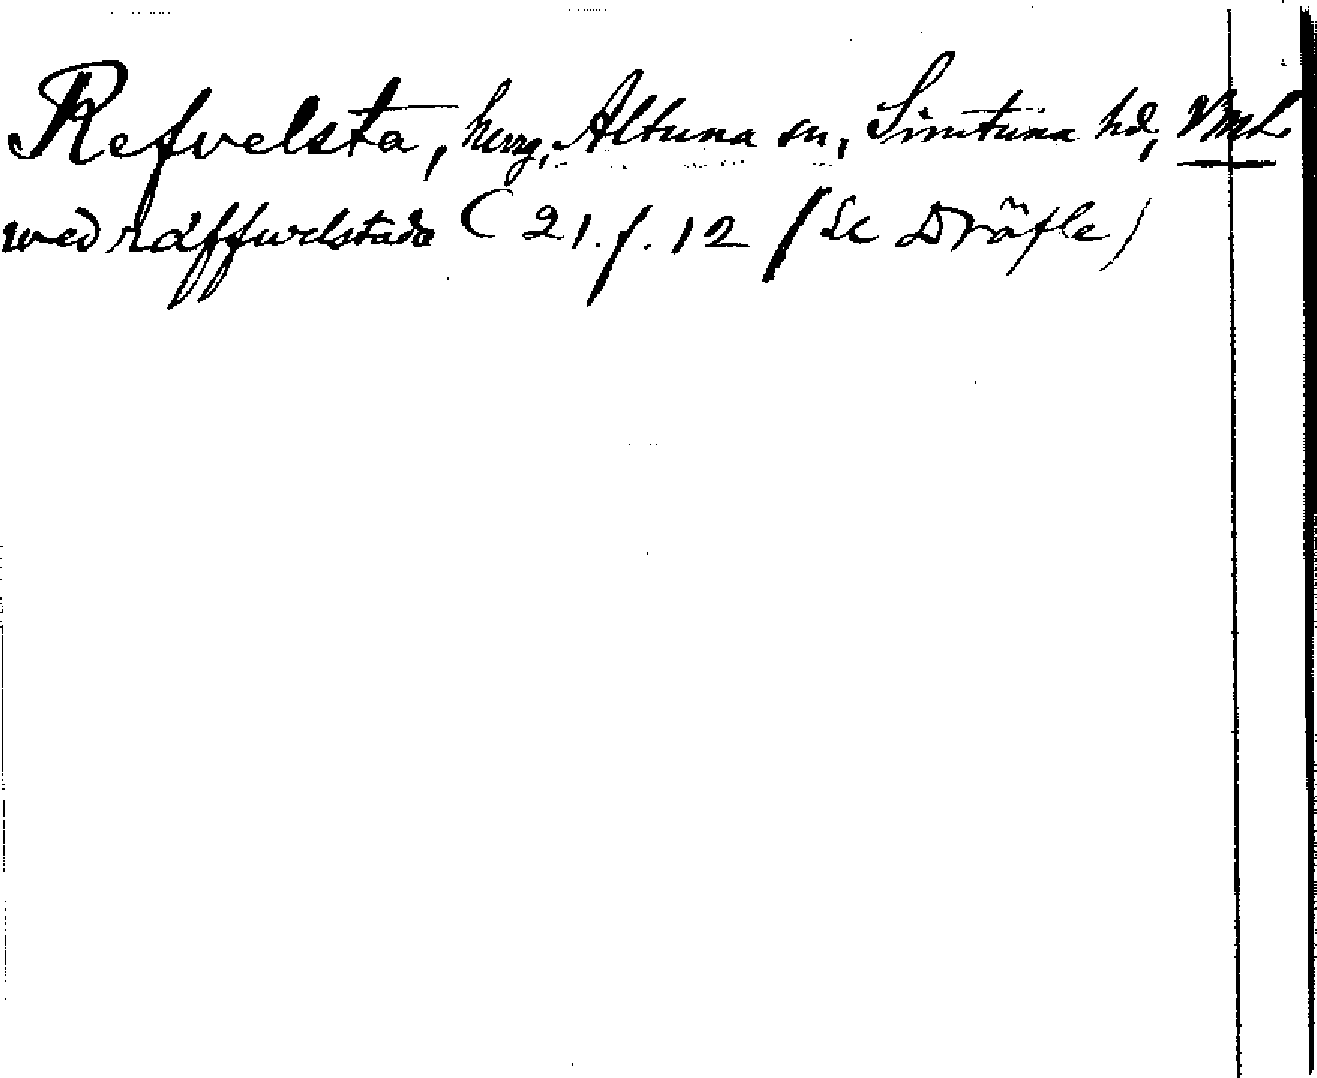 Refvelsta, herrg, Altuna sn, Simtuna hd, VmL
wed räffwelstada (21.f.12 / Se Dräfle)